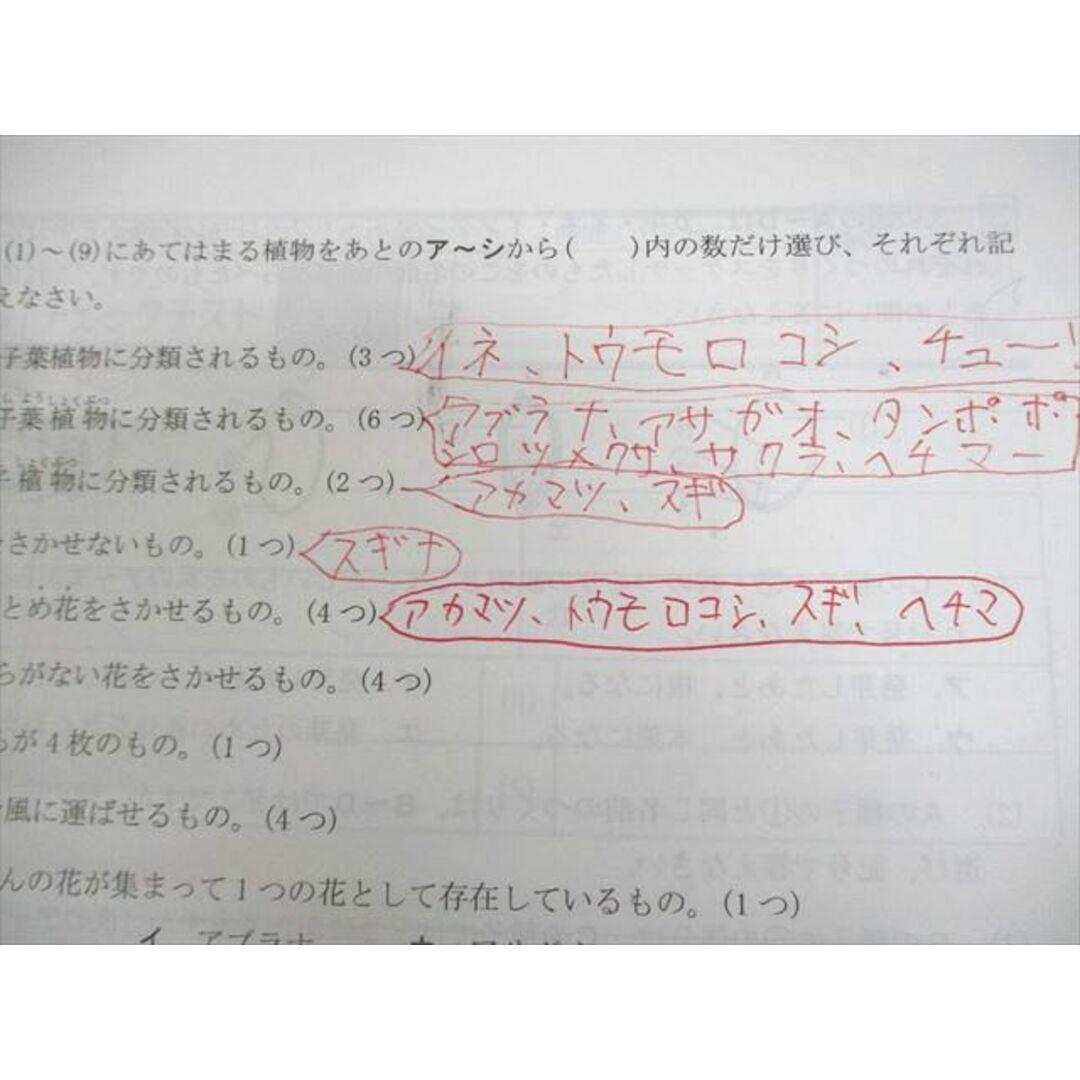 (1)～(9)にあてはまる植物をあとのア～シから(　　)内の数だけ選び、それぞれ記
えなさい。
子葉植物に分類されるもの。(3つ) イネ、トウモロコシ、チュー
子葉植物に分類されるもの。(6つ) アブラナ、アサガオ、タンポポ
シロツメクサ、サクラ、ヘチマー
子植物に分類されるもの。(2つ) アカマツ、スギ
さかせないもの。(1つ) スギナ
とめ花をさかせるもの。(4つ) アカマツ、トウモロコシ、スギ、ヘチマ
らがない花をさかせるもの。(4つ)
らが4枚のもの。(1つ)
風に運ばせるもの。(4つ)
んの花が集まって1つの花として存在しているもの。(1つ)
イ アブラナ